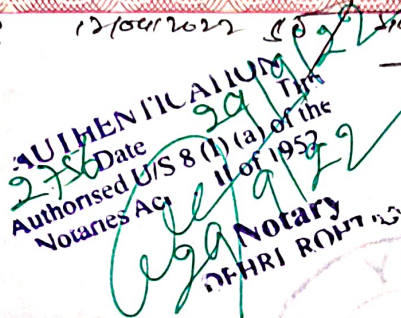 12/04/2022
AUTHENTICATION
2756 Date 29/9/22 Tim
Authorised U/S 8 (1) (a) of the
Notaries Act 11 of 1952
29/9/22
Notary
DEHRI ROHT